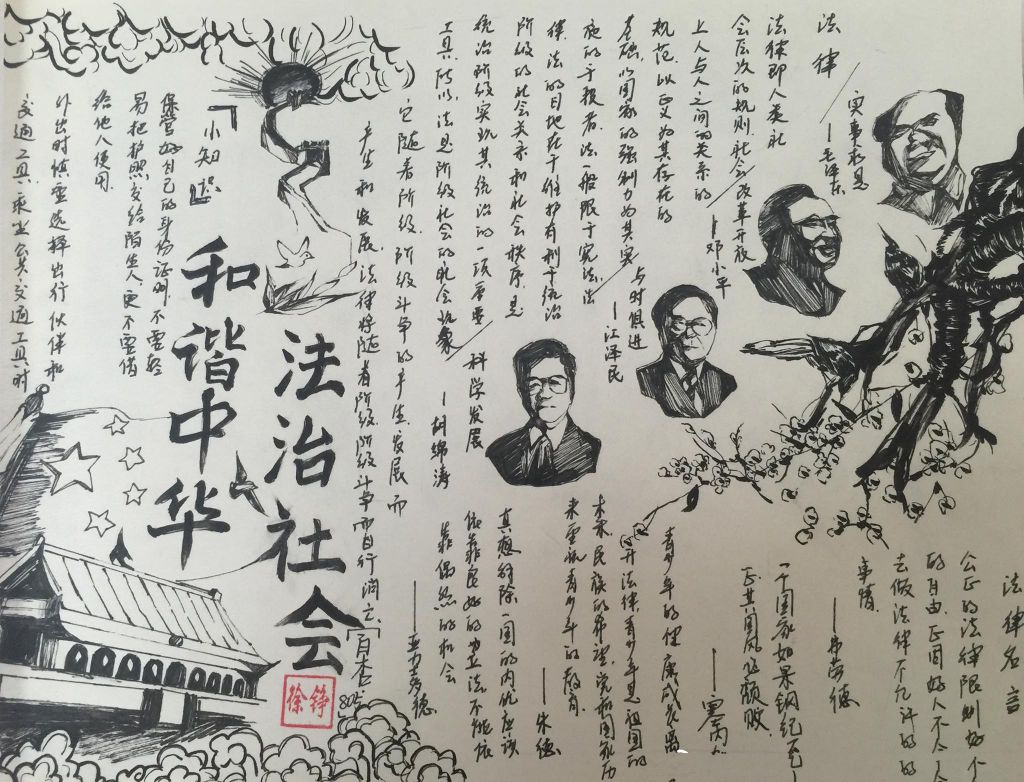 法律
法律即人类社
会层次的规则,社会
上人与人之间的关系的
规范,以正义为其存在的
基础,以国家的强制力为其实
施的手段者。法一般限于宪法、法
律。法的目地在于维护有利于统治
阶级的社会关系和社会秩序,是
统治阶级实现其统治的一项重要
工具。所以,法是阶级社会的社会现象
它随着阶级、阶级斗争的产生、发展而
产生和发展,法律将随着阶级、阶级斗争而自行消亡。
实事求是
—毛泽东
改革开放
—邓小平
与时俱进
—江泽民
科学发展
—胡锦涛
『小知识』
保管好自己的身份证明,不要轻
易把护照交给陌生人,更不要借
给他人使用
外出时慎重选择出行伙伴和
交通工具,乘坐公共交通工具时
和谐中华
法治社会
百杏
805
徐铮
法律名言
公正的法律限制好
的自由,正因好人不会
去做法律不允许的
事情
一个国家如果纲纪不
正其国风必颓败
青少年的健康成长离
开法律,青少年是祖国的
未来民族的希望,党和国家历
来重视青少年的教育
—朱德
真想解除一国的内忧应该
依靠良好的立法不能依
靠偶然的机会
——亚里多德